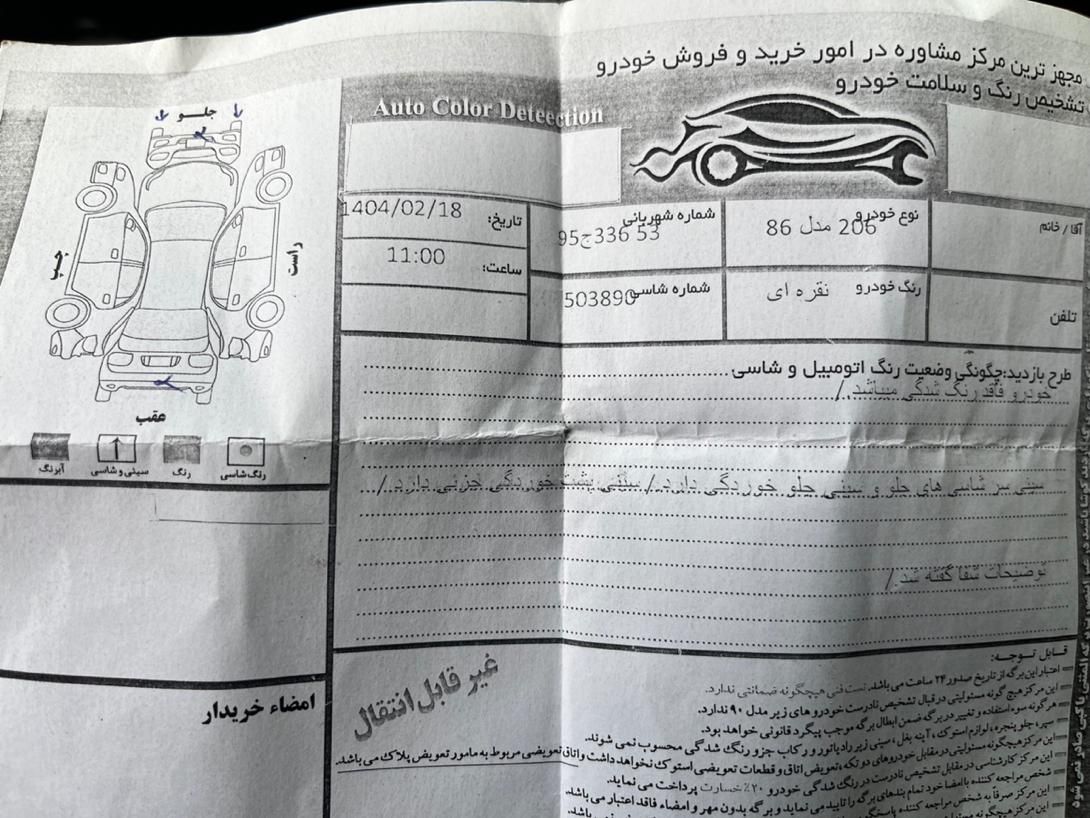 مجهز ترین مرکز مشاوره در امور خرید و فروش خودرو
تشخیص رنگ و سلامت خودرو
Auto Color Deteection
آقا / خانم
نوع خودرو 206 مدل 86
شماره شهربانی 53 336ج95
تاریخ: 1404/02/18
ساعت: 11:00
تلفن
رنگ خودرو نقره ای
شماره شاسی 503890
جلو
راست
چپ
عقب
رنگ شاسی
رنگ
سینی و شاسی
آبرنگ
طرح بازدید:چگونگی وضعیت رنگ اتومبیل و شاسی
خودرو فاقد رنگ شدگی میباشد./
سینی سر شاسی های جلو و سینی جلو خوردگی دارد./ سینی پشت خوردگی جزئی دارد./
توضیحات شفا گفته شد./
امضاء خریدار
غیر قابل انتقال
قابل توجه:
اعتبار این برگه از تاریخ صدور ۲۴ ساعت می باشد. تست فنی هیچگونه ضمانتی ندارد.
این مرکز هیچ گونه مسئولیتی در قبال تشخیص نادرست خودرو های زیر مدل ۹۰ ندارد.
هر گونه سوء استفاده و تغییر در برگه ضمن ابطال برگه موجب پیگرد قانونی خواهد بود.
سپر، جلو پنجره، لوازم استوک، ۲ بنه بغل، سینی زیر رادیاتور و رکاب جزو رنگ شدگی محسوب نمی شوند.
این مرکز هیچگونه مسئولیتی در مقابل خودروهای دو تکه، تعویض اتاق و قطعات تعویضی استوک نخواهد داشت و اتاق تعویضی مربوط به مامور تعویض پلاک می باشد.
این مرکز کارشناسی در مقابل تشخیص نادرست در رنگ شدگی خودرو ۲۰٪ خسارت پرداخت می نماید.
شخص مراجعه کننده با امضا خود تمام بندهای برگه را تایید می نماید و برگه بدون مهر و امضاء فاقد اعتبار می باشد.
این مرکز صرفاً به شخص مراجعه کننده
این مرکز هیچگونه